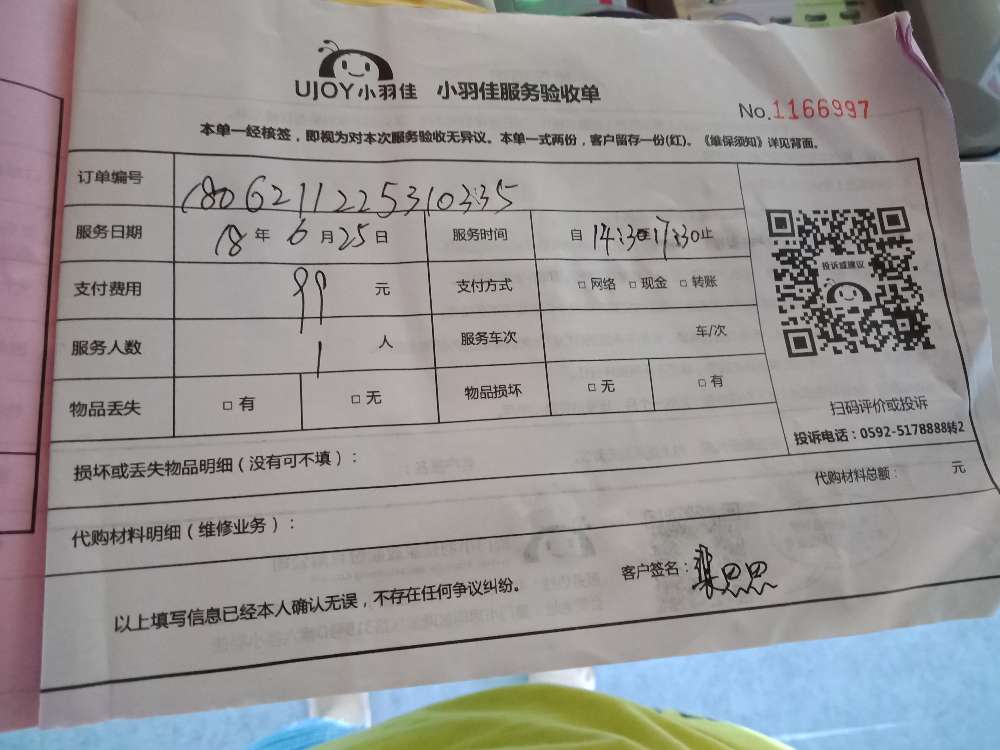 UJOY小羽佳 小羽佳服务验收单
No.1166997
本单一经核签，即视为对本次服务验收无异议。本单一式两份，客户留存一份(红)。《维保须知》详见背面。
订单编号 1806211225310335
服务日期 18 年 6 月 25 日 服务时间 自 14:30 至 17:30 止
支付费用 99 元 支付方式 □ 网络 □ 现金 □ 转账
服务人数 1 人 服务车次 车/次
物品丢失 □ 有 □ 无 物品损坏 □ 无 □ 有
投诉或建议
扫码评价或投诉
投诉电话：0592-5178888转2
损坏或丢失物品明细（没有可不填）：
代购材料明细（维修业务）： 代购材料总额： 元
以上填写信息已经本人确认无误，不存在任何争议纠纷。 客户签名：